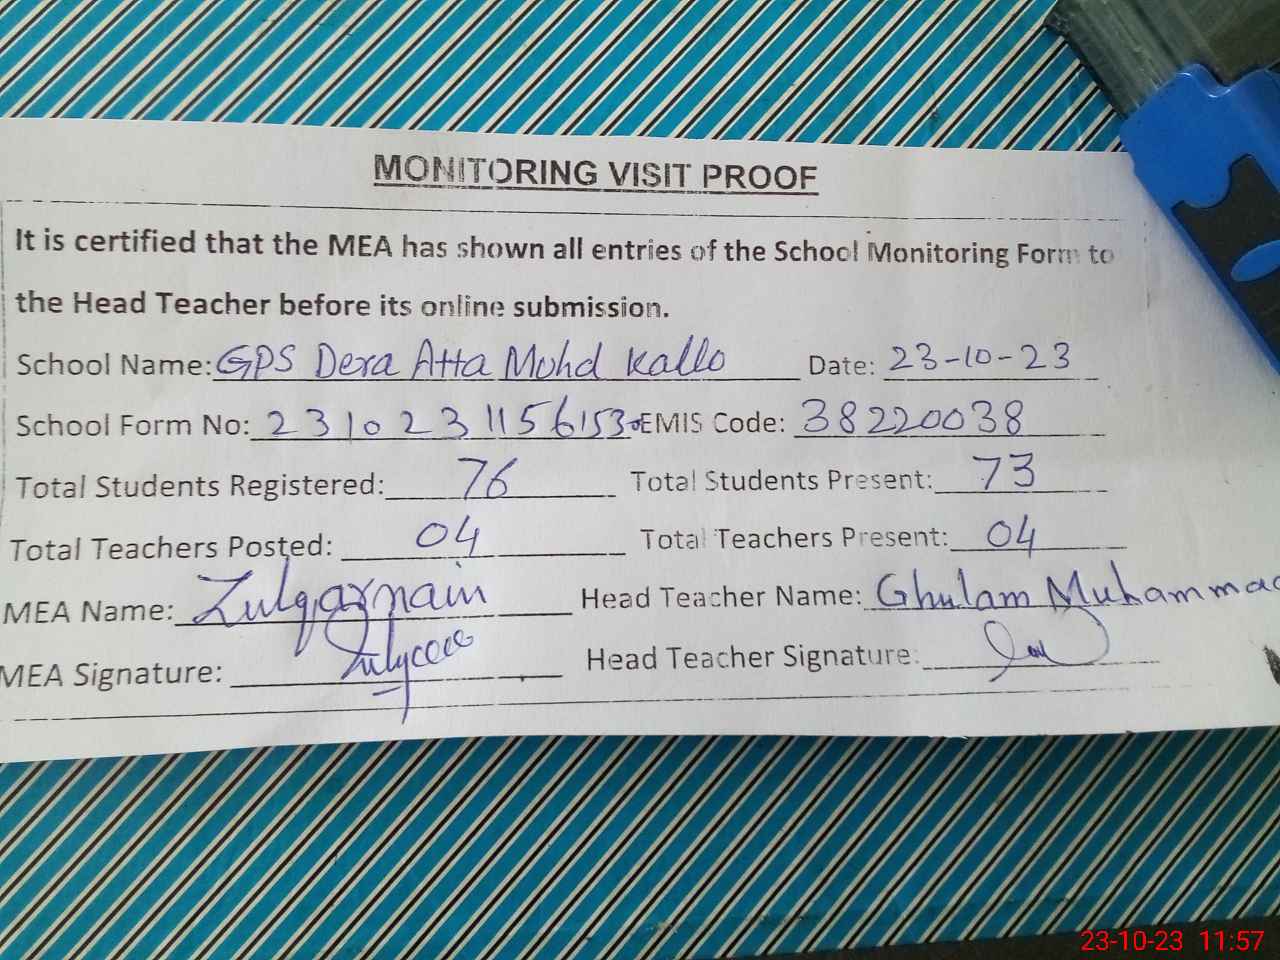 MONITORING VISIT PROOF
It is certified that the MEA has shown all entries of the School Monitoring Form to
the Head Teacher before its online submission.
School Name: GPS Dera Atta Mohd Kallo Date: 23-10-23
School Form No: 23102311561530 EMIS Code: 38220038
Total Students Registered: 76 Total Students Present: 73
Total Teachers Posted: 04 Total Teachers Present: 04
MEA Name: Zulqarnain Head Teacher Name: Ghulam Muhammad
MEA Signature: Head Teacher Signature:
23-10-23 11:57